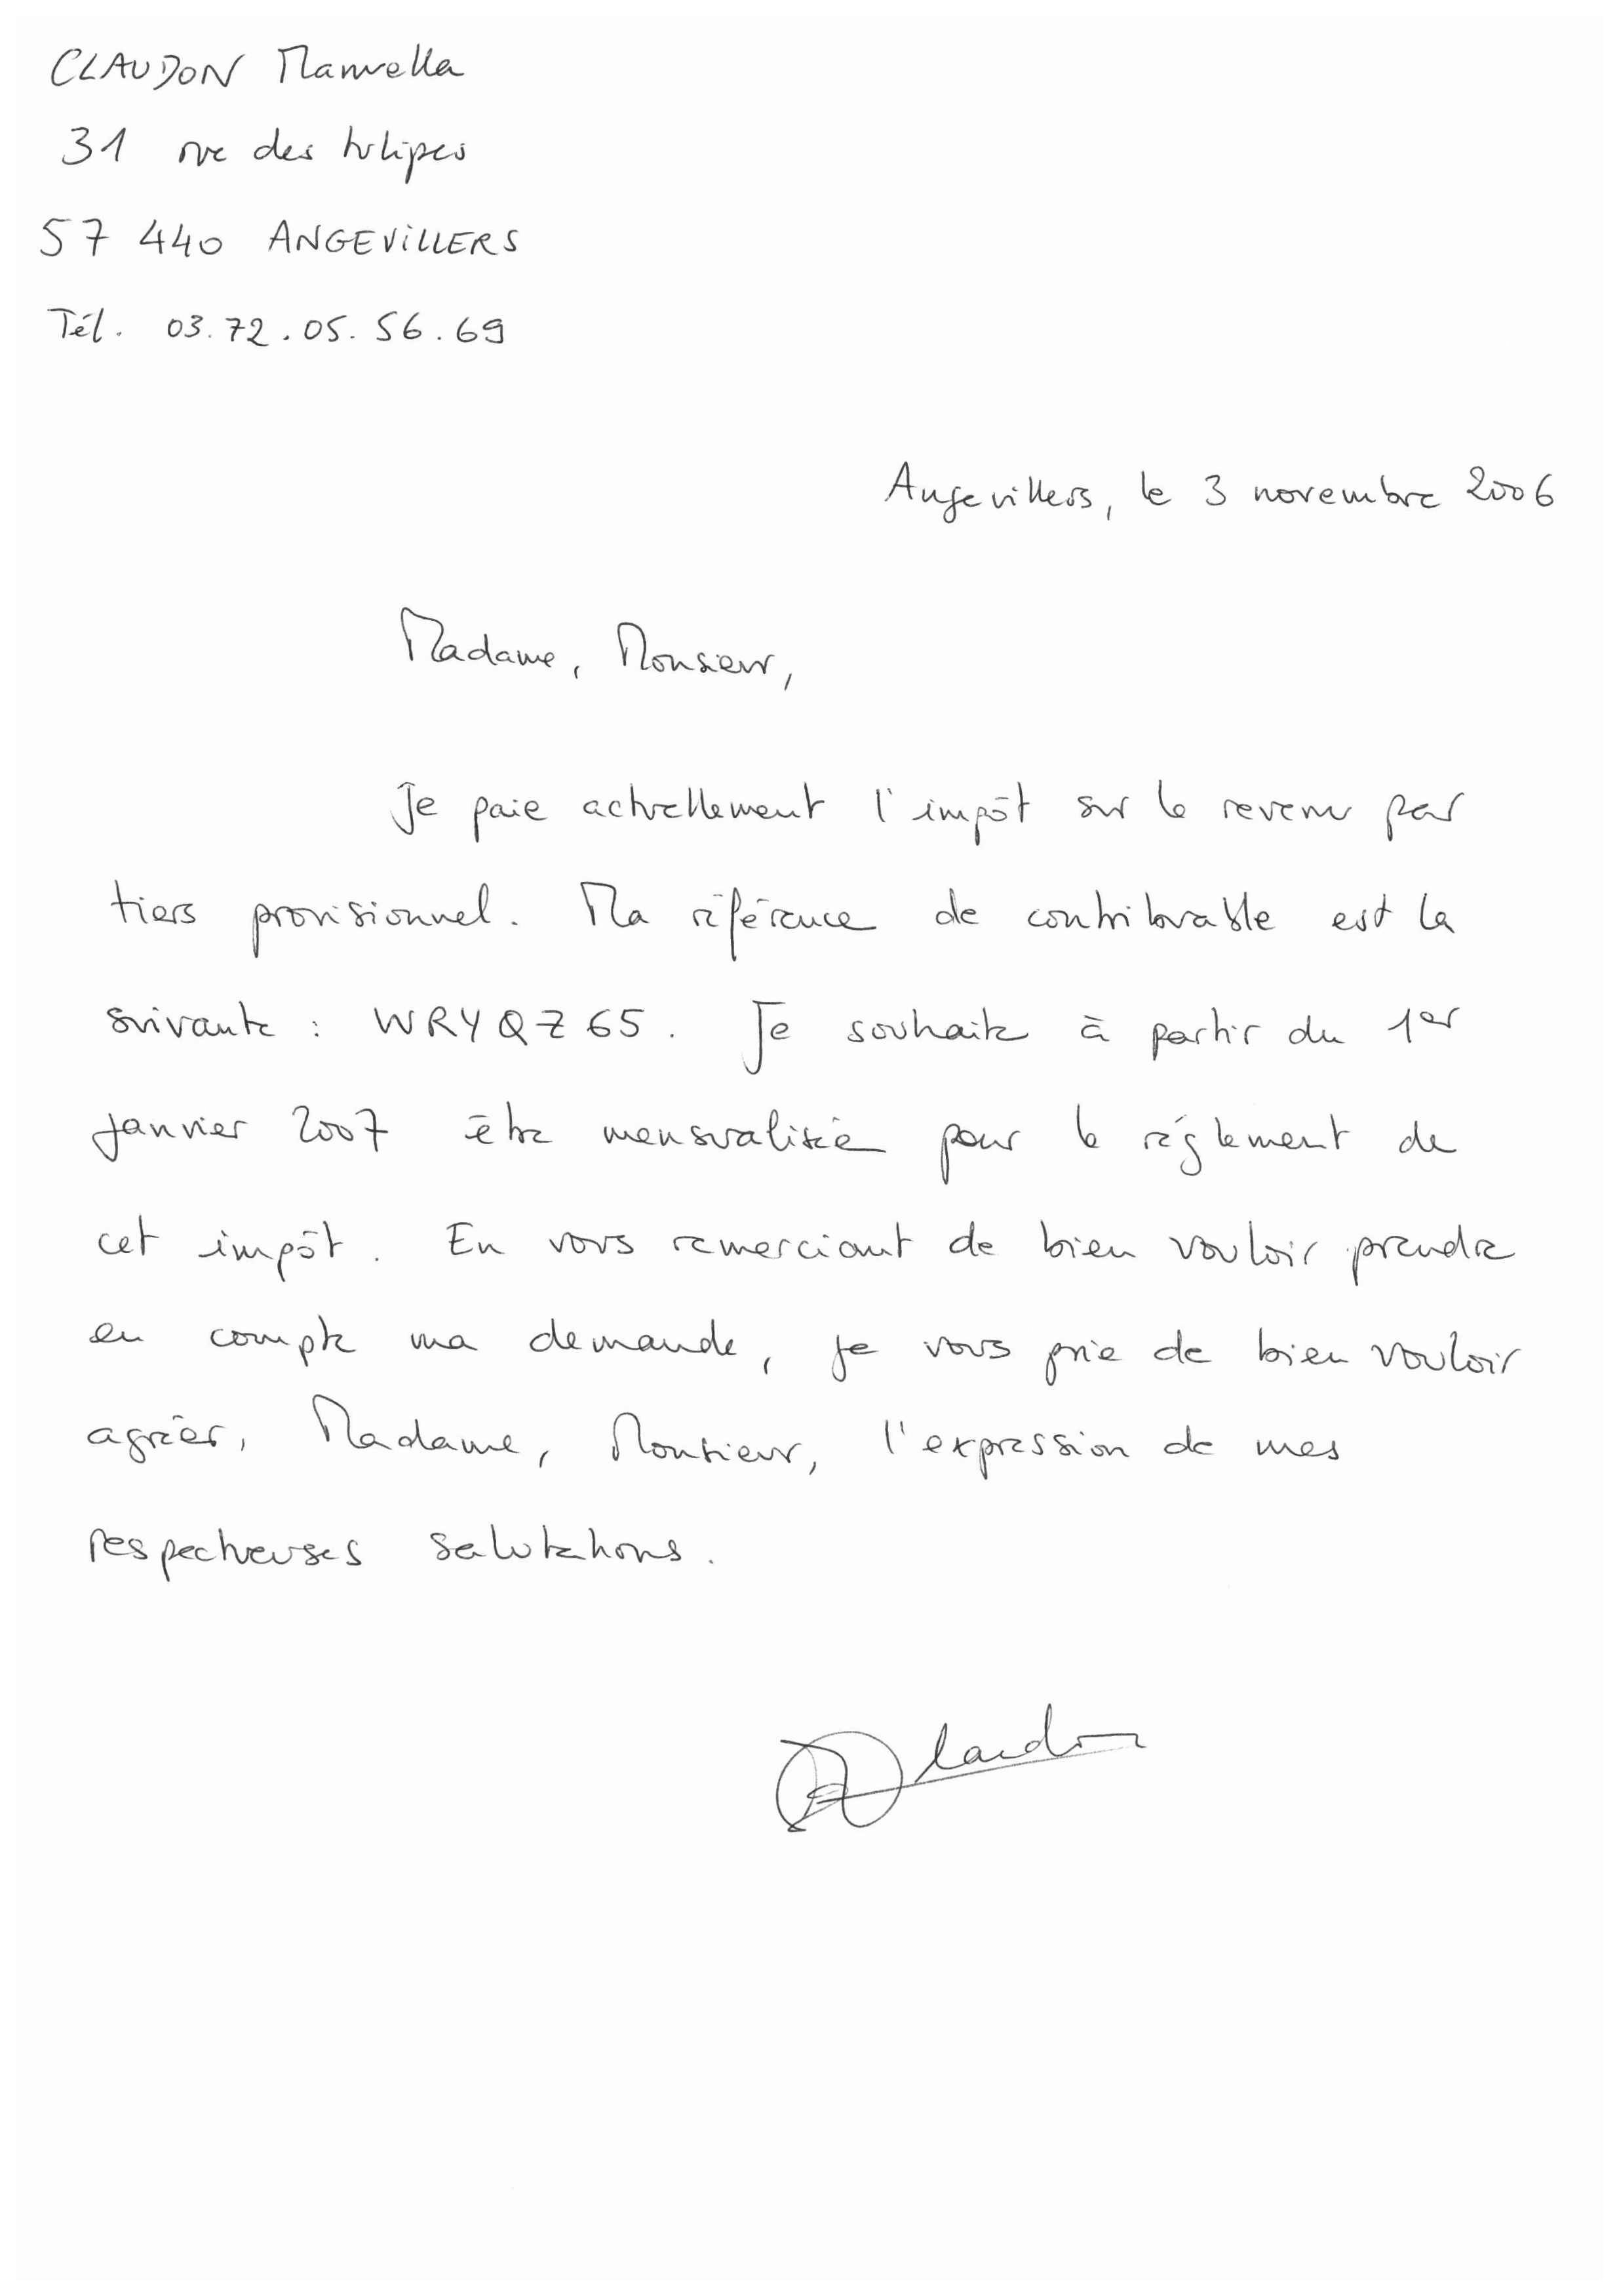 CLAUDON Manuella
31 rue des tulipes
57 440 ANGEVILLERS
Tél. 03.72.05.56.69
Angevillers, le 3 novembre 2006
Madame, Monsieur,
Je paie actuellement l'impôt sur le revenu par
tiers provisionnel. Ma référence de contribuable est la
suivante : WRYQZ65. Je souhaite à partir du 1er
janvier 2007 être mensualisée pour le réglement de
cet impôt. En vous remerciant de bien vouloir prendre
en compte ma demande, je vous prie de bien vouloir
agréer, Madame, Monsieur, l'expression de mes
respectueuses salutations.
Claudon